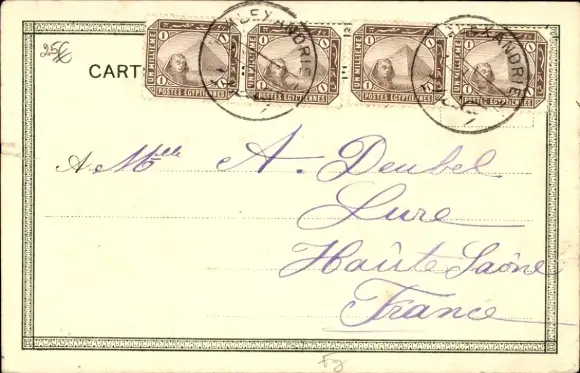 25€
CART
1 UN MILLIEME 1
POSTES EGYPTIENNES
1 UN MILLIEME 1
POSTES EGYPTIENNES
1 UN MILLIEME 1
POSTES EGYPTIENNES
1 1
POSTES EGYPTIENNES
ALEXANDRIE
ALEXANDRIE
A Mlle A. Deubel
Lure
Haûte Saône
France
Fg